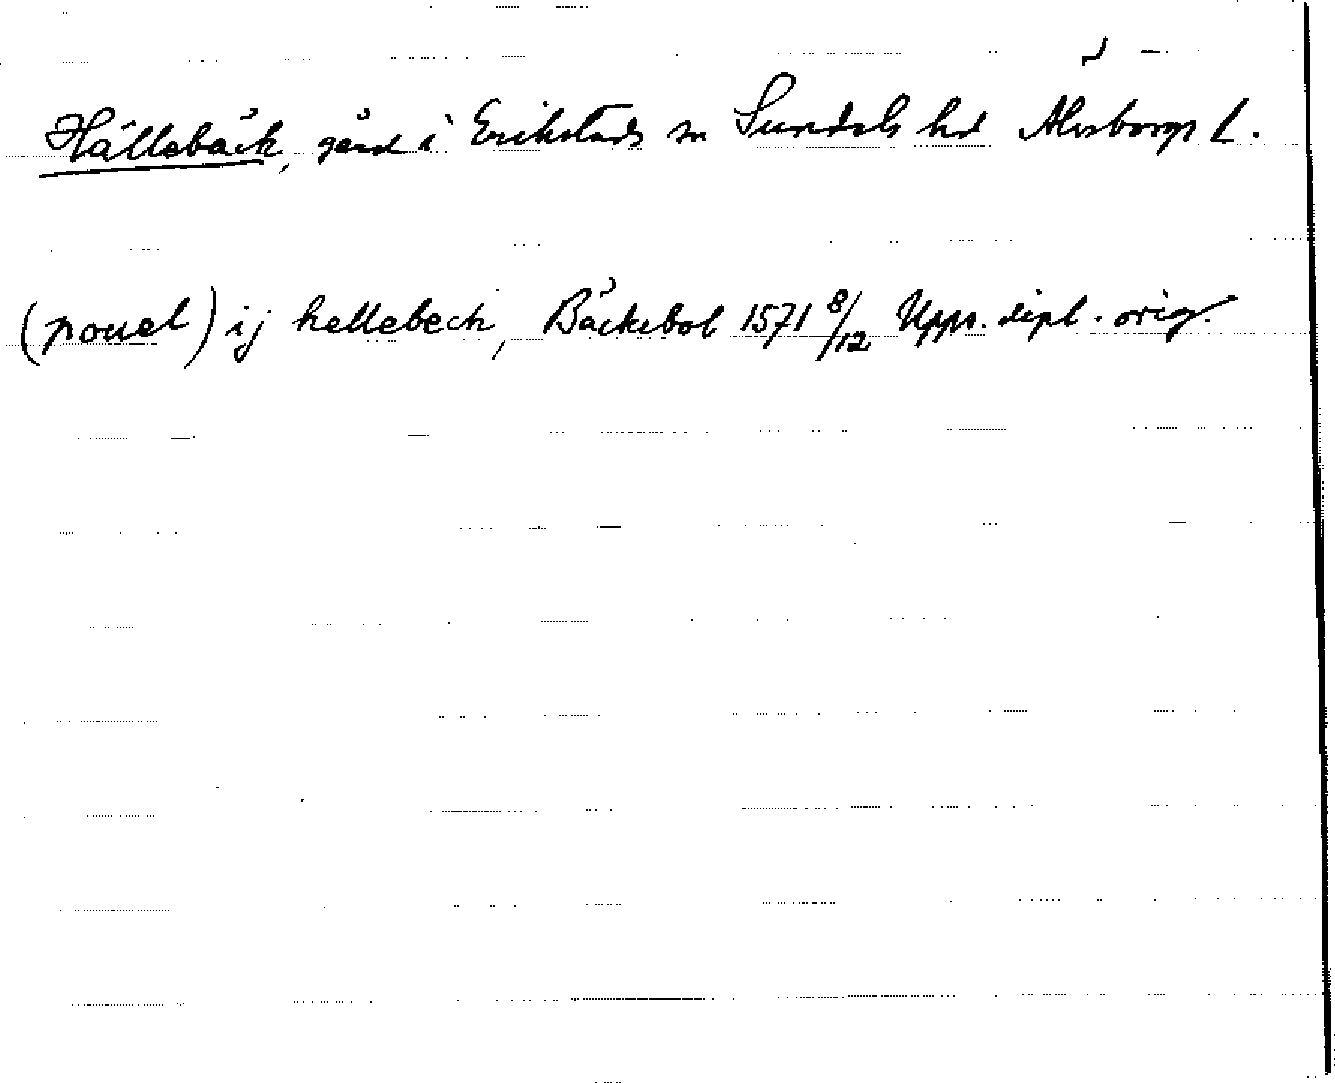 Hällebäck, gård i Erikstads sn Sundals hd Älvsborgs l.
(pouel) ij hellebeck, Bäckebol 1571 8/12 Upps. dipl. orig.